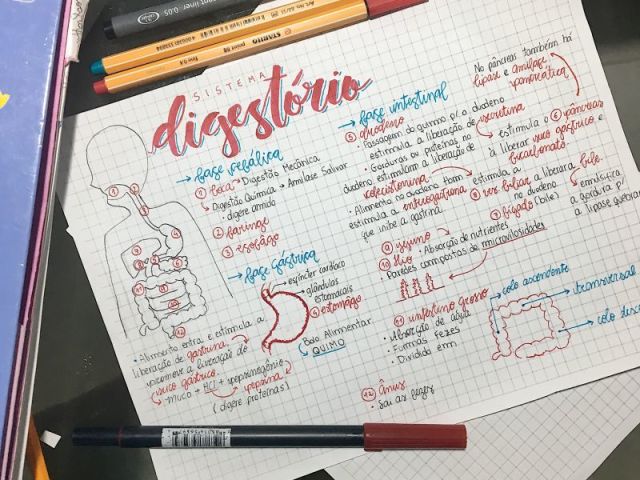 SISTEMA
digestório
→ fase cefálica
① boca → Digestão Mecânica
↳ Digestão Química → Amilase Salivar
• digere amido
② faringe
③ esôfago
→ fase gástrica
→ esfíncter cardíaco
→ glândulas estomacais
④ estômago
Bolo Alimentar
QUIMO
• Alimento entra e estimula a
liberação de gastrina, que
promove a liberação de
suco gástrico.
↳ muco + HCl + pepsinogênio
pepsina
(digere proteínas)
→ fase intestinal
⑤ duodeno
• Passagem do quimo p/ o duodeno
estimula a liberação de secretina
• Gorduras ou proteínas no
duodeno estimulam a liberação de
colecistocinina
• Alimento no duodeno também
estimula a enterogastrona
que inibe a gastrina
No pâncreas também há
lipase e amilase
pancreática
estimula o ⑥ pâncreas
à liberar suco gástrico e
bicarbonato.
estimula a
⑧ ves. biliar a liberar a bile.
no duodeno
⑦ fígado (bile)
emulsifica
a gordura p/
a lipase quebrar
⑨ jejuno
⑩ íleo
• Absorção de nutrientes
• Paredes compostas de microvilosidades
⑪ intestino grosso
• Absorção de água
• Formas fezes
• Dividido em:
colo ascendente
transversal
colo desc
⑫ ânus
• Sai as fezes
0.05
STABILO
point 88